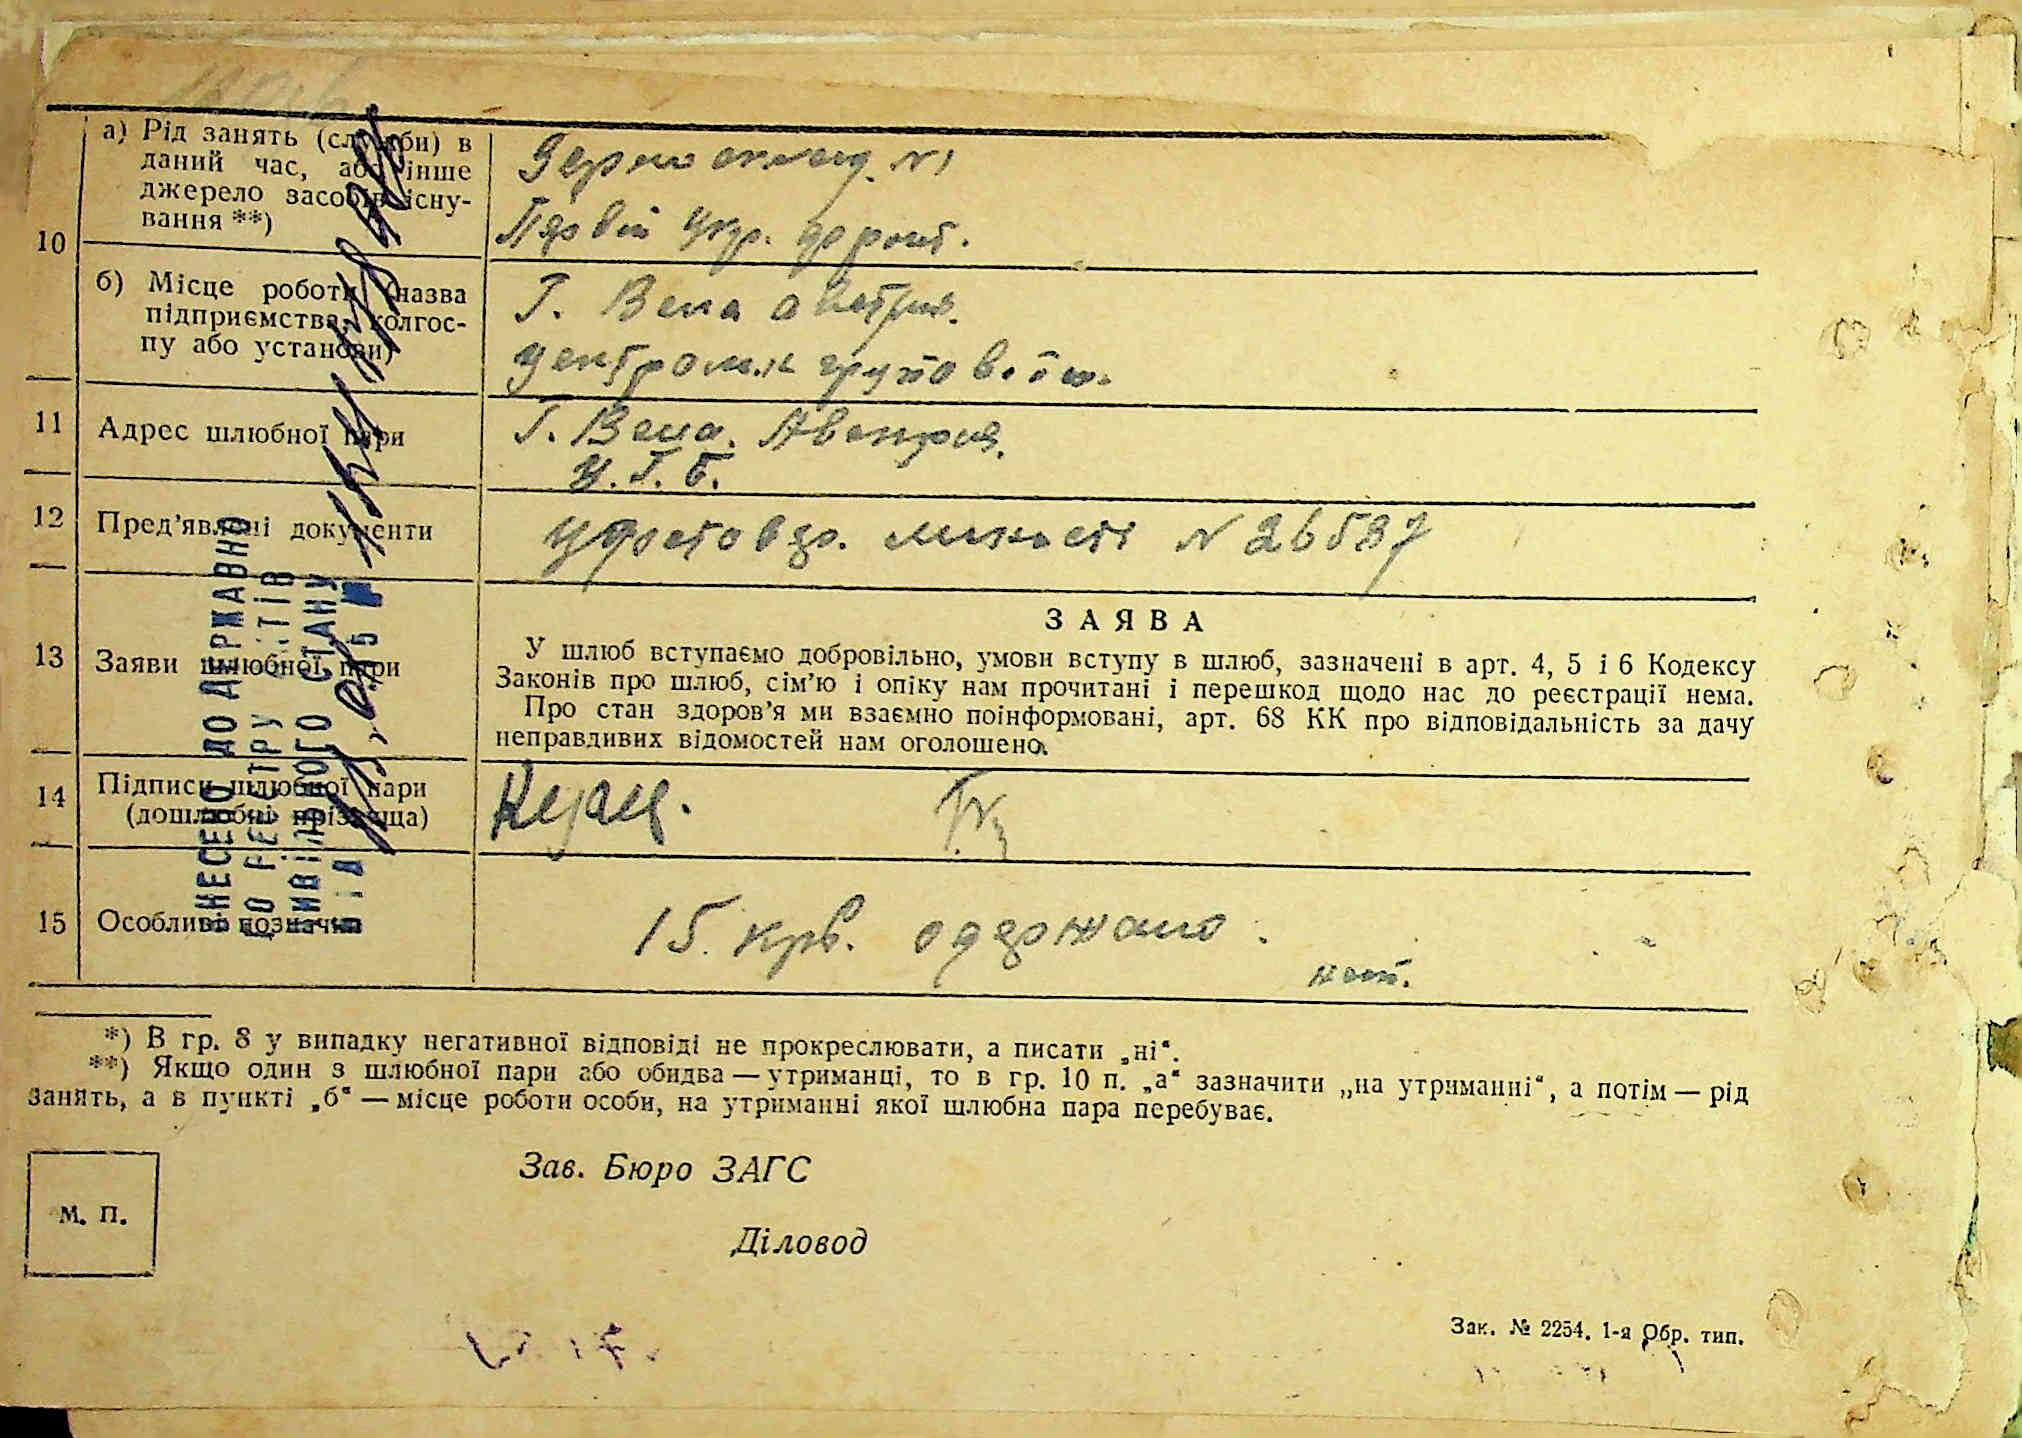 10
а) Рід занять (служби) в
даний час, або інше
джерело засобів існу-
вання **)
N1
Укр. фронт.
б) Місце роботи (назва
підприємства, колгос-
пу або установи)
Г. Вена Австрия.
11
Адрес шлюбної пари
Г. Вена. Австрия.
Ц. Г. В.
12
Пред'явлені документи
N 26587
13
Заяви шлюбної пари
ЗАЯВА
У шлюб вступаємо добровільно, умови вступу в шлюб, зазначені в арт. 4, 5 і 6 Кодексу
Законів про шлюб, сім'ю і опіку нам прочитані і перешкод щодо нас до реєстрації нема.
Про стан здоров'я ми взаємно поінформовані, арт. 68 КК про відповідальність за дачу
неправдивих відомостей нам оголошено.
14
Підписи шлюбної пари
(дошлюбні прізвища)
15
Особливі позначки
15. крб. одержано.
ВНЕСЕНО ДО ДЕРЖАВНО
ГО РЕЄСТРУ АКТІВ
ЦИВІЛЬНОГО СТАНУ
*) В гр. 8 у випадку негативної відповіді не прокреслювати, а писати „ні“.
**) Якщо один з шлюбної пари або обидва — утриманці, то в гр. 10 п. „а“ зазначити „на утриманні“, а потім — рід
занять, а в пункті „б“ — місце роботи особи, на утриманні якої шлюбна пара перебуває.
Зав. Бюро ЗАГС
М. П.
Діловод
Зак. № 2254. 1-я Обр. тип.